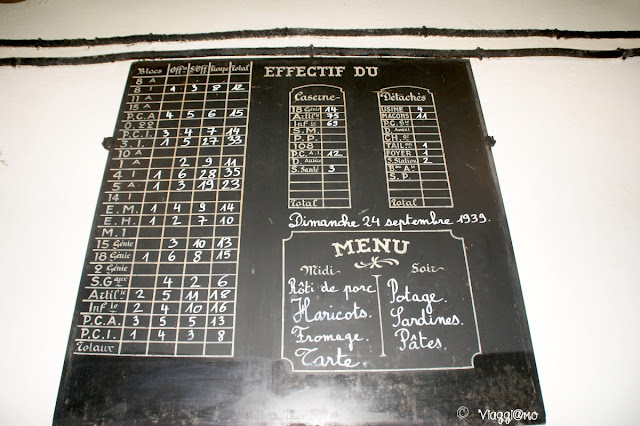 EFFECTIF DU
Blocs Off. S/Off Troupe Total
8 A
8 I 1 3 8 12
11 A
15 A
P.C.A 4 5 6 15
O.B
P.C.I. 3 4 7 14
3. I. 1 5 27 33
10 A
1 A 2 9 11
4 I 1 6 28 35
5 A 1 3 19 23
14 I
E. M. 1 4 9 14
E. H. 1 2 7 10
M. 1
15 Génie 3 10 13
18 Génie 1 6 8 15
2 Génie
S. G 4 2 6
Artil 2 5 11 18
Inf 2 4 10 16
P.C.A. 3 5 5 13
P.C.I. 1 4 3 8
Totaux
Caserne
18 Génie 14
Artil 75
Inf 69
S. M.
P. P.
108
P.C.A.I. 12
D.
S. Santé 3
Total
Détachés
USINE 9
MAÇONS 11
P.C.
D.
CH.
TAIL 1
FOYER 1
S. Station 2
S. P.
Total
Dimanche 24 septembre 1939.
MENU
Midi
Rôti de porc
Haricots.
Fromage.
Tarte.
Soir
Potage.
Sardines.
Pâtes.
© Viaggi@mo